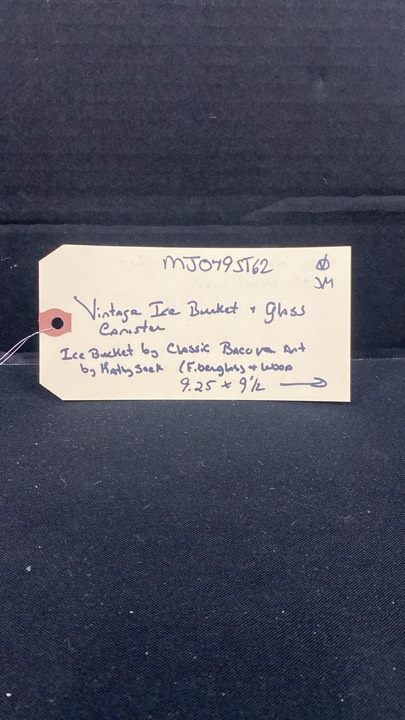 MJ0495T62
JM
Vintage Ice Bucket + Glass
Canister
Ice Bucket by Classic Bacova Art
by Kathy Seek (Fiberglass + Wood
9.25 x 9 1/2 →